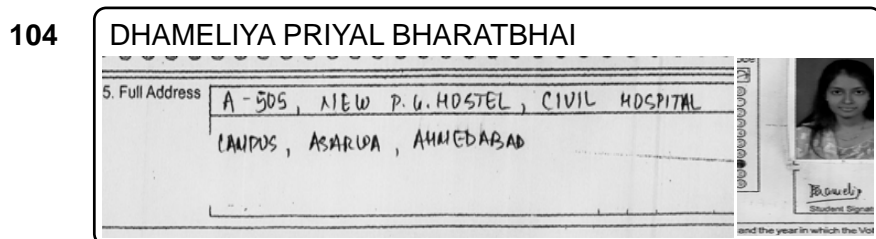 104
DHAMELIYA PRIYAL BHARATBHAI
5. Full Address
A-505, NEW P.G. HOSTEL, CIVIL HOSPITAL
CAMPUS, ASARWA, AHMEDABAD
Student Signat
and the year in which the Vot